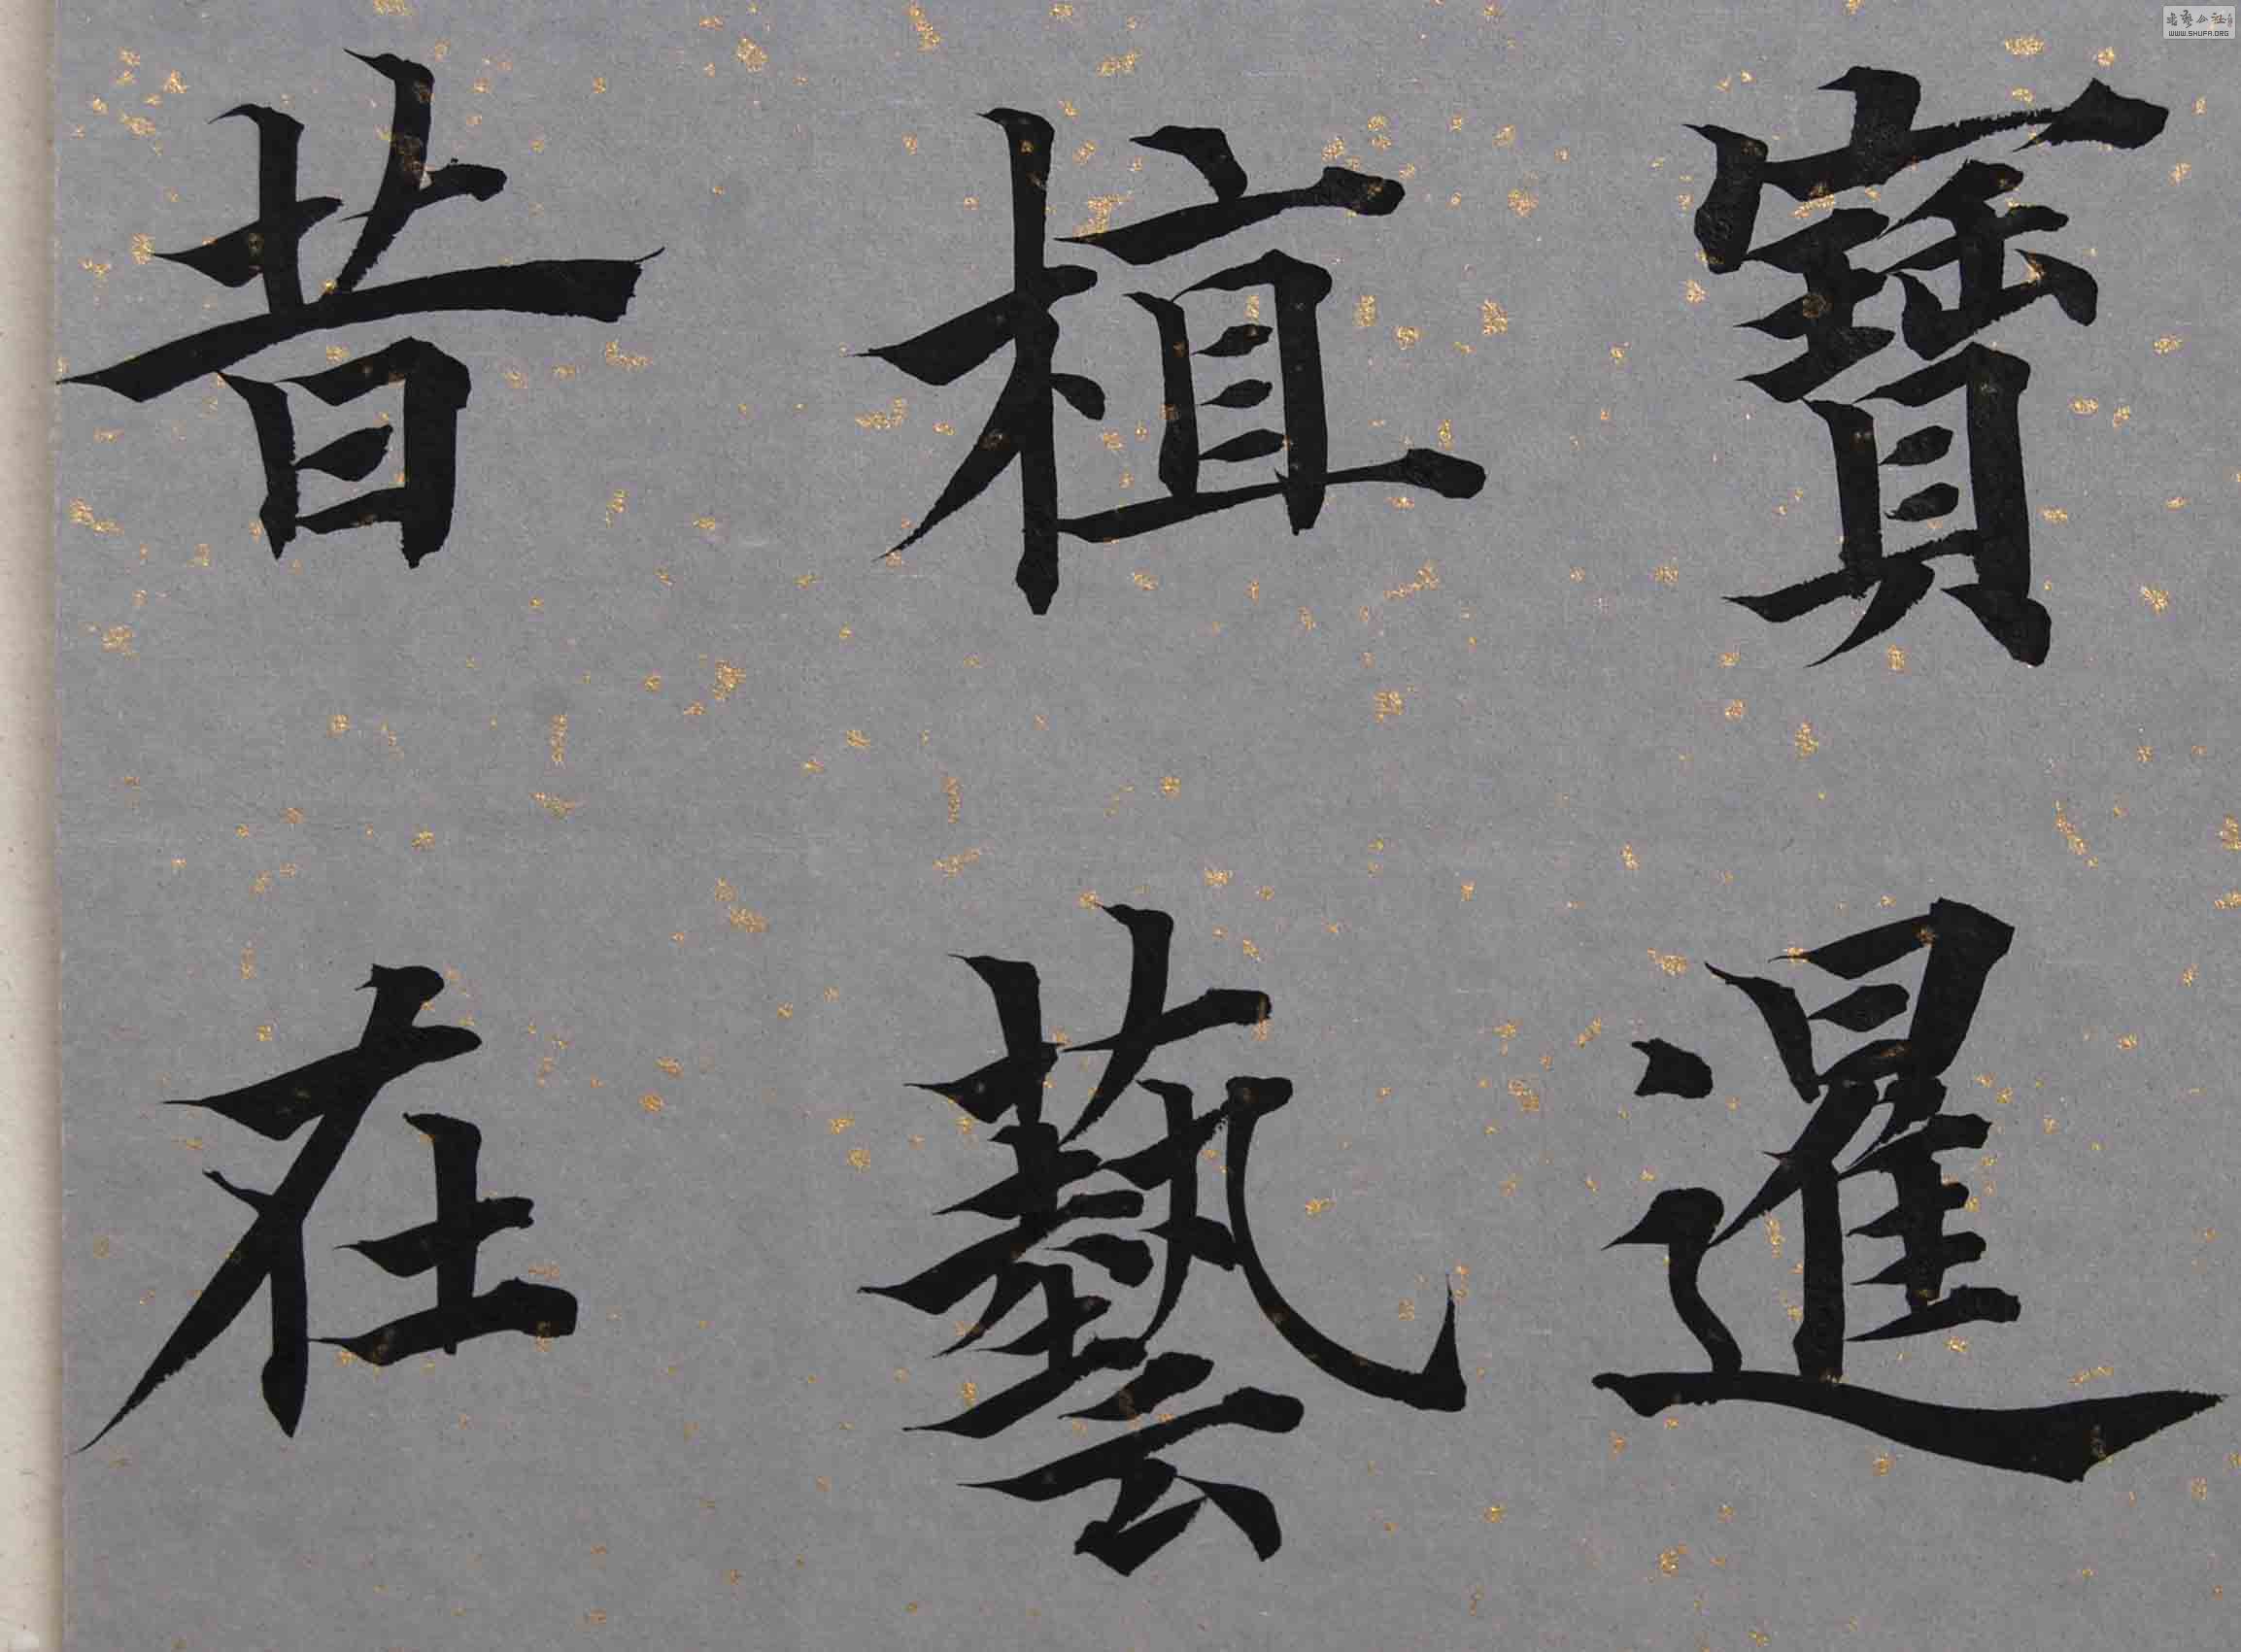 寶暹
植藝
昔在
书艺公社
WWW.SHUFA.ORG